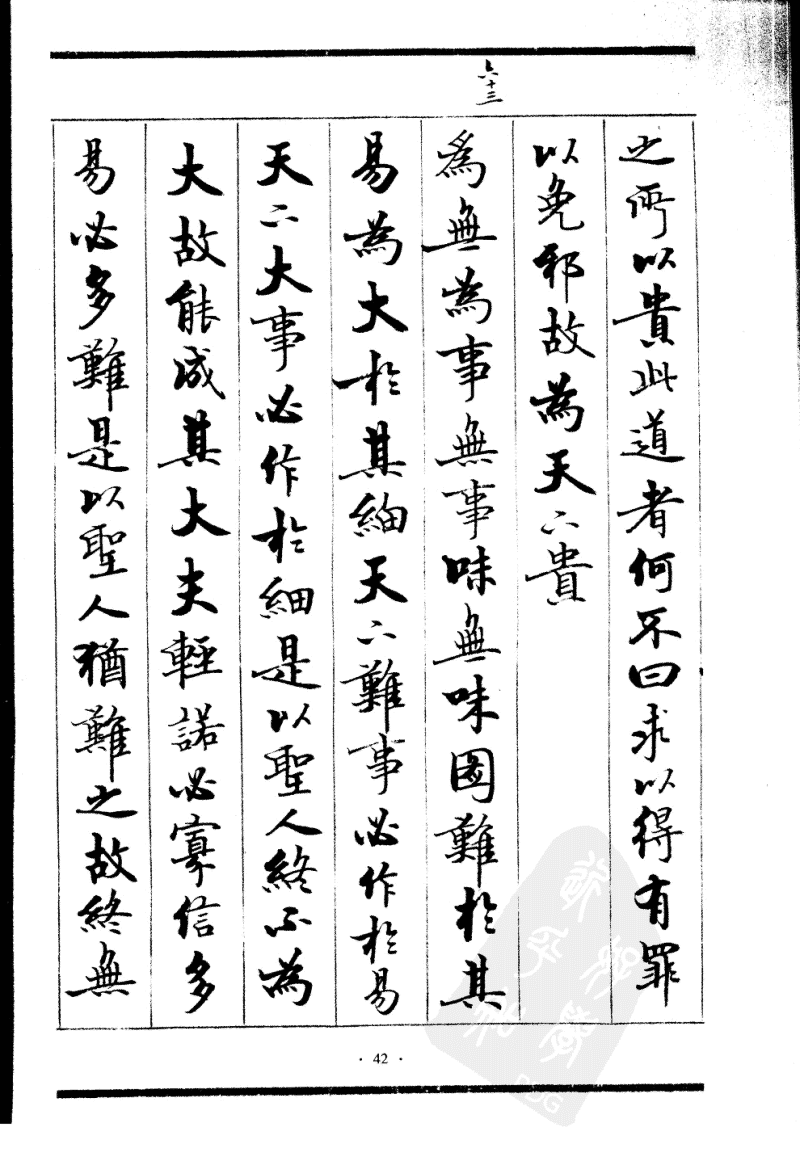 之所以貴此道者何不曰求以得有罪
以免邪故為天下貴
六十三
爲無為事無事味無味圖難於其
易為大於其細天下難事必作於易
天下大事必作於細是以聖人終不為
大故能成其大夫輕諾必寡信多
易必多難是以聖人猶難之故終無
· 42 ·